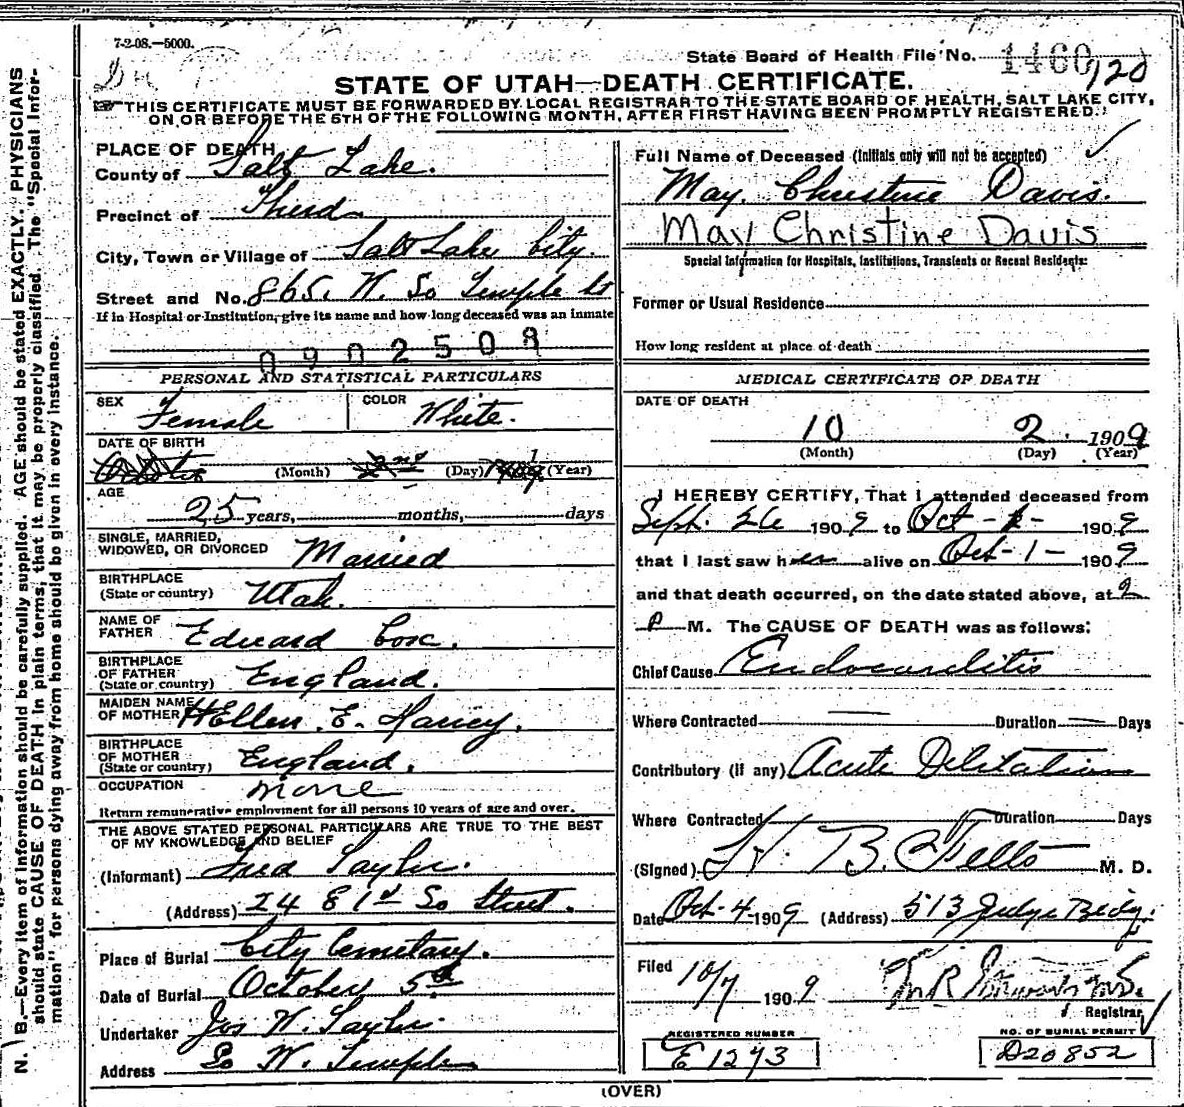 7-2-08.—5000.
State Board of Health File No. 1460 120
STATE OF UTAH—DEATH CERTIFICATE.
THIS CERTIFICATE MUST BE FORWARDED BY LOCAL REGISTRAR TO THE STATE BOARD OF HEALTH, SALT LAKE CITY,
ON OR BEFORE THE 5TH OF THE FOLLOWING MONTH, AFTER FIRST HAVING BEEN PROMPTLY REGISTERED.
PLACE OF DEATH
County of Salt Lake.
Precinct of Third
City, Town or Village of Salt Lake City.
Street and No. 865. W. So Temple St
If in Hospital or Institution, give its name and how long deceased was an inmate
0902508
PERSONAL AND STATISTICAL PARTICULARS
SEX Female COLOR White.
DATE OF BIRTH
October (Month) 2nd (Day) (Year)
AGE
25 years, months, days
SINGLE, MARRIED, WIDOWED, OR DIVORCED Married
BIRTHPLACE (State or country) Utah.
NAME OF FATHER Edward Cox.
BIRTHPLACE OF FATHER (State or country) England.
MAIDEN NAME OF MOTHER Hellen E. Harvey.
BIRTHPLACE OF MOTHER (State or country) England.
OCCUPATION None
Return remunerative employment for all persons 10 years of age and over.
THE ABOVE STATED PERSONAL PARTICULARS ARE TRUE TO THE BEST
OF MY KNOWLEDGE AND BELIEF
(Informant) Fred Taylor.
(Address) 24 E 1st So Street.
Place of Burial City Cemetary.
Date of Burial October 5th
Undertaker Jos W. Taylor
Address So W. Temple
Full Name of Deceased (Initials only will not be accepted)
May Christine Davis.
May Christine Davis
Special Information for Hospitals, Institutions, Transients or Recent Residents:
Former or Usual Residence
How long resident at place of death
MEDICAL CERTIFICATE OF DEATH
DATE OF DEATH
10 2. 1909
(Month) (Day) (Year)
I HEREBY CERTIFY, That I attended deceased from
Sept. 26 1909 to Oct - 1 - 1909
that I last saw her alive on Oct - 1 - 1909
and that death occurred, on the date stated above, at 2
P M. The CAUSE OF DEATH was as follows:
Chief Cause Endocarditis
Where Contracted — Duration — Days
Contributory (if any) Acute Dilitation
Where Contracted Duration Days
(Signed) B. M. D.
Date Oct-4-1909 (Address) 513 Judge Bldg.
Filed 10/7 1909
Registrar
REGISTERED NUMBER
E 1273
NO. OF BURIAL PERMIT
D20852
(OVER)
N. B.—Every item of information should be carefully supplied. AGE should be stated EXACTLY. PHYSICIANS
should state CAUSE OF DEATH in plain terms, that it may be properly classified. The "Special Infor-
mation" for persons dying away from home should be given in every instance.